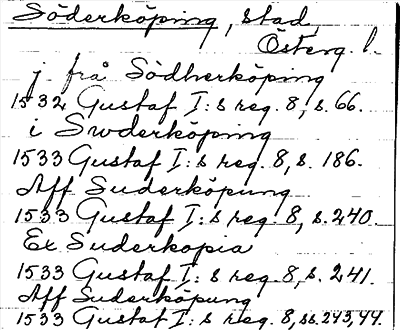 Söderköping, stad,
Österg. l.
j frå Södherköping
1532 Gustaf I:s reg. 8, s. 66.
i Swderköping
1533 Gustaf I:s reg. 8, s. 186.
Aff Suderköpung
1533 Gustaf I:s reg. 8, s. 240.
Ex Suderkopia
1533 Gustaf I:s reg. 8, s. 241.
Aff Suderköpung
1533 Gustaf I:s reg. 8, ss. 243, 44.